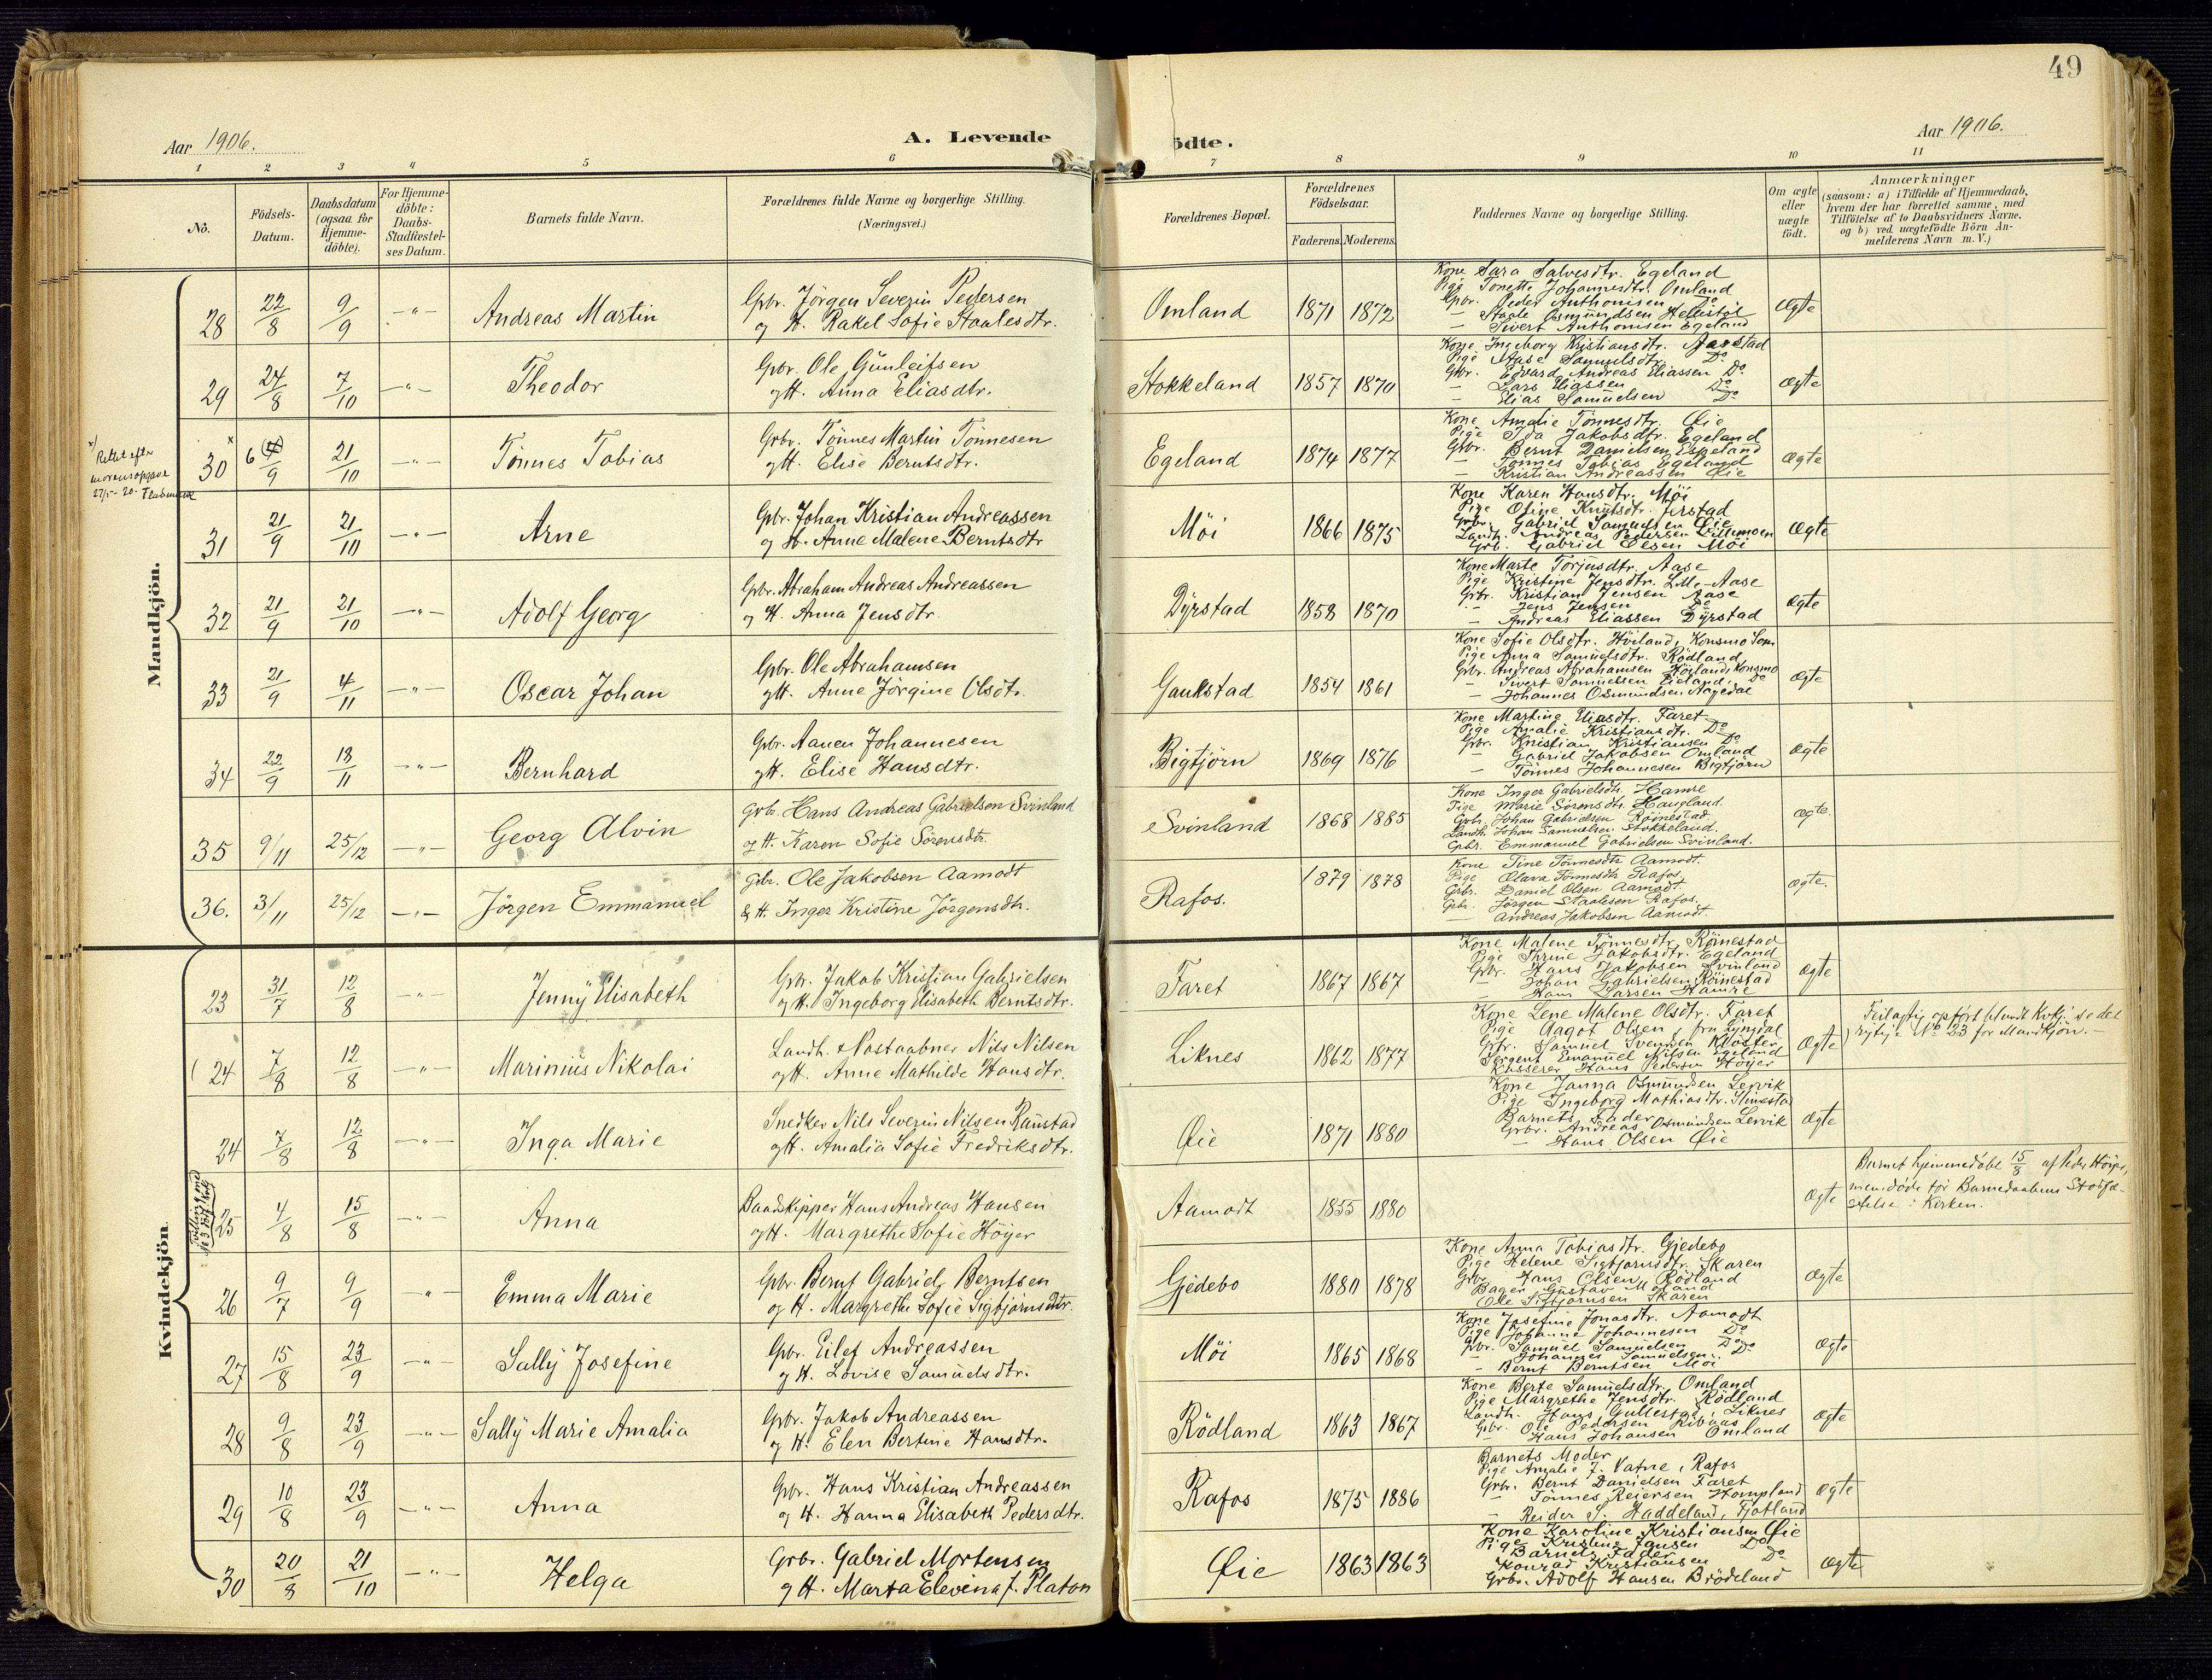 49
Aar 1906.
A. Levende
ödte.
Aar 1906.
1 2 3 4 5 6 7 8 9 10 11
No.
Födsels-Datum.
Daabsdatum (ogsaa for Hjemme-döbte).
For Hjemme-döbte: Daabs-Stadfæstel-ses Datum.
Barnets fulde Navn.
Forældrenes fulde Navne og borgerlige Stilling.
(Næringsvei.)
Forældrenes Bopæl.
Forældrenes Födselsaar.
Faderens. Moderens.
Faddernes Navne og borgerlige Stilling.
Om ægte eller uægte födt.
Anmærkninger
(saasom: a) i Tilfælde af Hjemmedaab,
hvem der har forrettet samme, med
Tilföielse af to Daabsvidners Navne.
og b) ved uægtefödte Börn An-
melderens Navn m. V.)
Mandkjön.
28 22/8 9/9 -"- Andreas Martin
Gbr. Jörgen Severin Pedersen
og H. Rakel Sofie Staalesdtr.
Omland 1871 1872
Kone Sara Salvesdtr. Egeland
Pige Tonette Johannesdtr. Omland
Gbr. Peder Anthonisen Do
— Staale Osmundsen
— Sivert Anthonisen Egeland
Ægte
29 24/8 7/10 -"- Theodor
Gbr. Ole Gunleifsen
og H. Anna Eliasdtr.
Stokkeland 1857 1870
Kone Ingeborg Kristiansdtr. Aarstad
Pige Aase Samuelsdtr. Do
Gbr. Edvard Andreas Eliassen Do
— Lars Eliassen Do
— Elias Samuelsen Do
Ægte
x) Rettet efter
morens opgave
27/5-20.
30 x 6 (4)/9 21/10 -"- Tönnes Tobias
Grbr. Tönnes Martin Tönnesen
og H. Elise Berntsdtr.
Egeland 1874 1877
Kone Amalie Tönnesdtr. Øie
Pige Ida Jakobsdtr. Egeland
Grbr. Bernt Danielsen Espeland
— Tönnes Tobias Egeland
— Kristian Andreassen Øie
Ægte
31 21/9 21/10 -"- Arne
Gbr. Johan Kristian Andreassen
og H. Anne Malene Berntsdtr
Möi 1866 1875
Kone Karen Hansdtr. Möi
Pige Ofine Knutsdtr. Jerstad
Grbr. Gabriel Samuelsen Øie
Landh. Andreas Pedersen Lillemoen
Grb. Gabriel Olsen Möi
Ægte
32 21/9 21/10 -"- Adolf Georg
Gbr. Abraham Andreas Andreassen
og H. Anna Jensdtr.
Dyrstad 1858 1870
Kone Marte Torjusdtr. Aase
Pige Kristine Jensdtr. L.lle-Aase
Grbr. Kristian Jensen Aase
— Jens Jensen Do
— Andreas Eliassen Dyrstad
Ægte
33 21/9 4/11 -"- Oscar Johan
Gbr. Ole Abrahamsen
og H. Anne Jörgine Olsdtr.
Gaukstad 1854 1861
Kone Sofie Olsdtr. Höiland, Konsmo Sogn
Pige Anna Samuelsdtr. Rödland
Grbr. Andreas Abrahamsen Höiland, Konsmo
— Sivert Samuelsen Eieland, Do
— Johannes Osmundsen Aagedal
Ægte
34 22/9 18/11 -"- Bernhard
Gbr. Aanen Johannesen
og H. Elise Hansdtr.
Bigtjörn 1869 1876
Kone Martine Eliasdtr. Faret
Pige Amalie Kristiansdtr. Do
Grbr. Kristian Kristiansen Do
— Gabriel Jakobsen Omland
— Tönnes Johannesen Bigtjörn
Ægte
35 9/11 25/12 -"- Georg Alvin
Grb. Hans Andreas Gabrielsen Svinland
og H. Karen Sofie Sörensdtr.
Svinland 1868 1885
Kone Inger Gabrielsdtr. Hamre
Pige Marie Sörensdtr. Haugland.
Gbr. Johan Gabrielsen Röinestad.
Landh. Johan Samuelsen Stokkeland.
Gbr. Emmanuel Gabrielsen Svinland.
Ægte.
36. 3/11 25/12 -"- Jörgen Emmanuel
Grbr. Ole Jakobsen Aamodt
& H. Inger Kristine Jörgensdtr.
Rafos. 1879 1878
Kone Tine Tönnesdtr Aamodt.
Pige Olava Tönnesdtr Rafos.
Grbr. Daniel Olsen Aamodt.
Grbr. Jörgen Staalesen Rafos.
— Andreas Jakobsen Aamodt.
Ægte.
Kvindekjön
23 31/7 12/8 -"- Jenny Elisabeth
Gbr. Jakob Kristian Gabrielsen
og H. Ingeborg Elisabeth Berntsdtr.
Faret 1867 1867
Kone Malene Tönnesdtr. Röinestad
Pige Thrine Jakobsdtr. Egeland
Gbr. Hans Jakobsen Svinland
— Johan Gabrielsen Röinestad
— Hans Larsen Hamre
Ægte
( 24 7/8 12/8 -"- Marinius Nikolai
Landh. & Postaabner Nils Nilsen
og H. Anne Mathilde Hansdtr.
Liknes 1862 1877
Kone Lene Malene Olsdtr. Faret
Pige Aagot Olsen, fra Lyngdal
Gbr. Samuel Svendsen Kloster
Sergent Emanuel Nilsen Egeland
Kasserer Hans Pedersen Höyer
Ægte
Feilagtig opfört blandt Kvkj.; se det
rigtige No 23 for Mandkjön.—
24 7/8 12/8 -"- Inga Marie
Snedker Nils Severin Nilsen Raustad
og H. Amalia Sofie Fredriksdtr.
Øie 1871 1880
Kone Janna Osmundsen Lervik
Pige Ingeborg Mathiasdtr. Stinestad
Barnets Fader
Grbr. Andreas Osmundsen Lervik
— Hans Olsen Øie
Ægte
25 4/8 15/8 -"- Anna
Baadskipper Hans Andreas Hansen
og H. Margrethe Sofie Höyer
Aamodt 1855 1880
Ægte
Barnet hjemmedöbt 15/8 af Peder Höyer,
men döde för Barnedaabens Stadfæ-
stelse i Kirken.
26 9/7 9/9 -"- Emma Marie
Gbr. Bernt Gabriel Berntsen
og H. Margrethe Sofie Sigbjörnsdtr.
Gjedebo 1880 1878
Kone Anna Tobiasdtr. Gjedebo
Pige Helene Sigbjörnsdtr. Skaren
Grbr. Hans Olsen Rödland
Bager Gustav Moland
Ole Sigbjörnsen Skaren
Ægte
27 15/8 23/9 -"- Sally Josefine
Gbr. Eilef Andreassen
og H. Lovise Samuelsdtr.
Möi 1865 1868
Kone Josefine Jonasdtr. Aamodt
Pige Johanne Johannesen Do
Gbr. Samuel Samuelsen Do
— Johannes Samuelsen Do
— Bernt Berntsen Möi
Ægte
28 9/8 23/9 -"- Sally Marie Amalia
Gbr. Jakob Andreassen
og H. Elen Bertine Hansdtr.
Rödland 1863 1867
Kone Berte Samuelsdtr. Omland
Pige Margrethe Jensdtr. Rödland
Landh. Hans Gullestad, Liknes
Gbr. Ole Pedersen Ribnaas
— Hans Johansen Omland
Ægte
29 10/8 23/9 -"- Anna
Gbr. Hans Kristian Andreassen
og H. Hanna Elisabeth Pedersdtr.
Rafos 1875 1886
Barnets Moder
Pige Amalie J. Vatne, Rafos
Grbr. Bernt Danielsen Faret
— Tönnes Reiersen Hompland
— Reider S. Haddeland, Fjotland
Ægte
30 20/8 21/10 -"- Helga
Grbr. Gabriel Mortensen
og H. Marta Elevina f. Platon
Øie 1863 1863
Kone Karoline Kristiansen Øie
Pige Kristine Jansen Do
Barnets Fader
Konrad Kristiansen Do
Grbr. Adolf Hansen Brödeland
Ægte